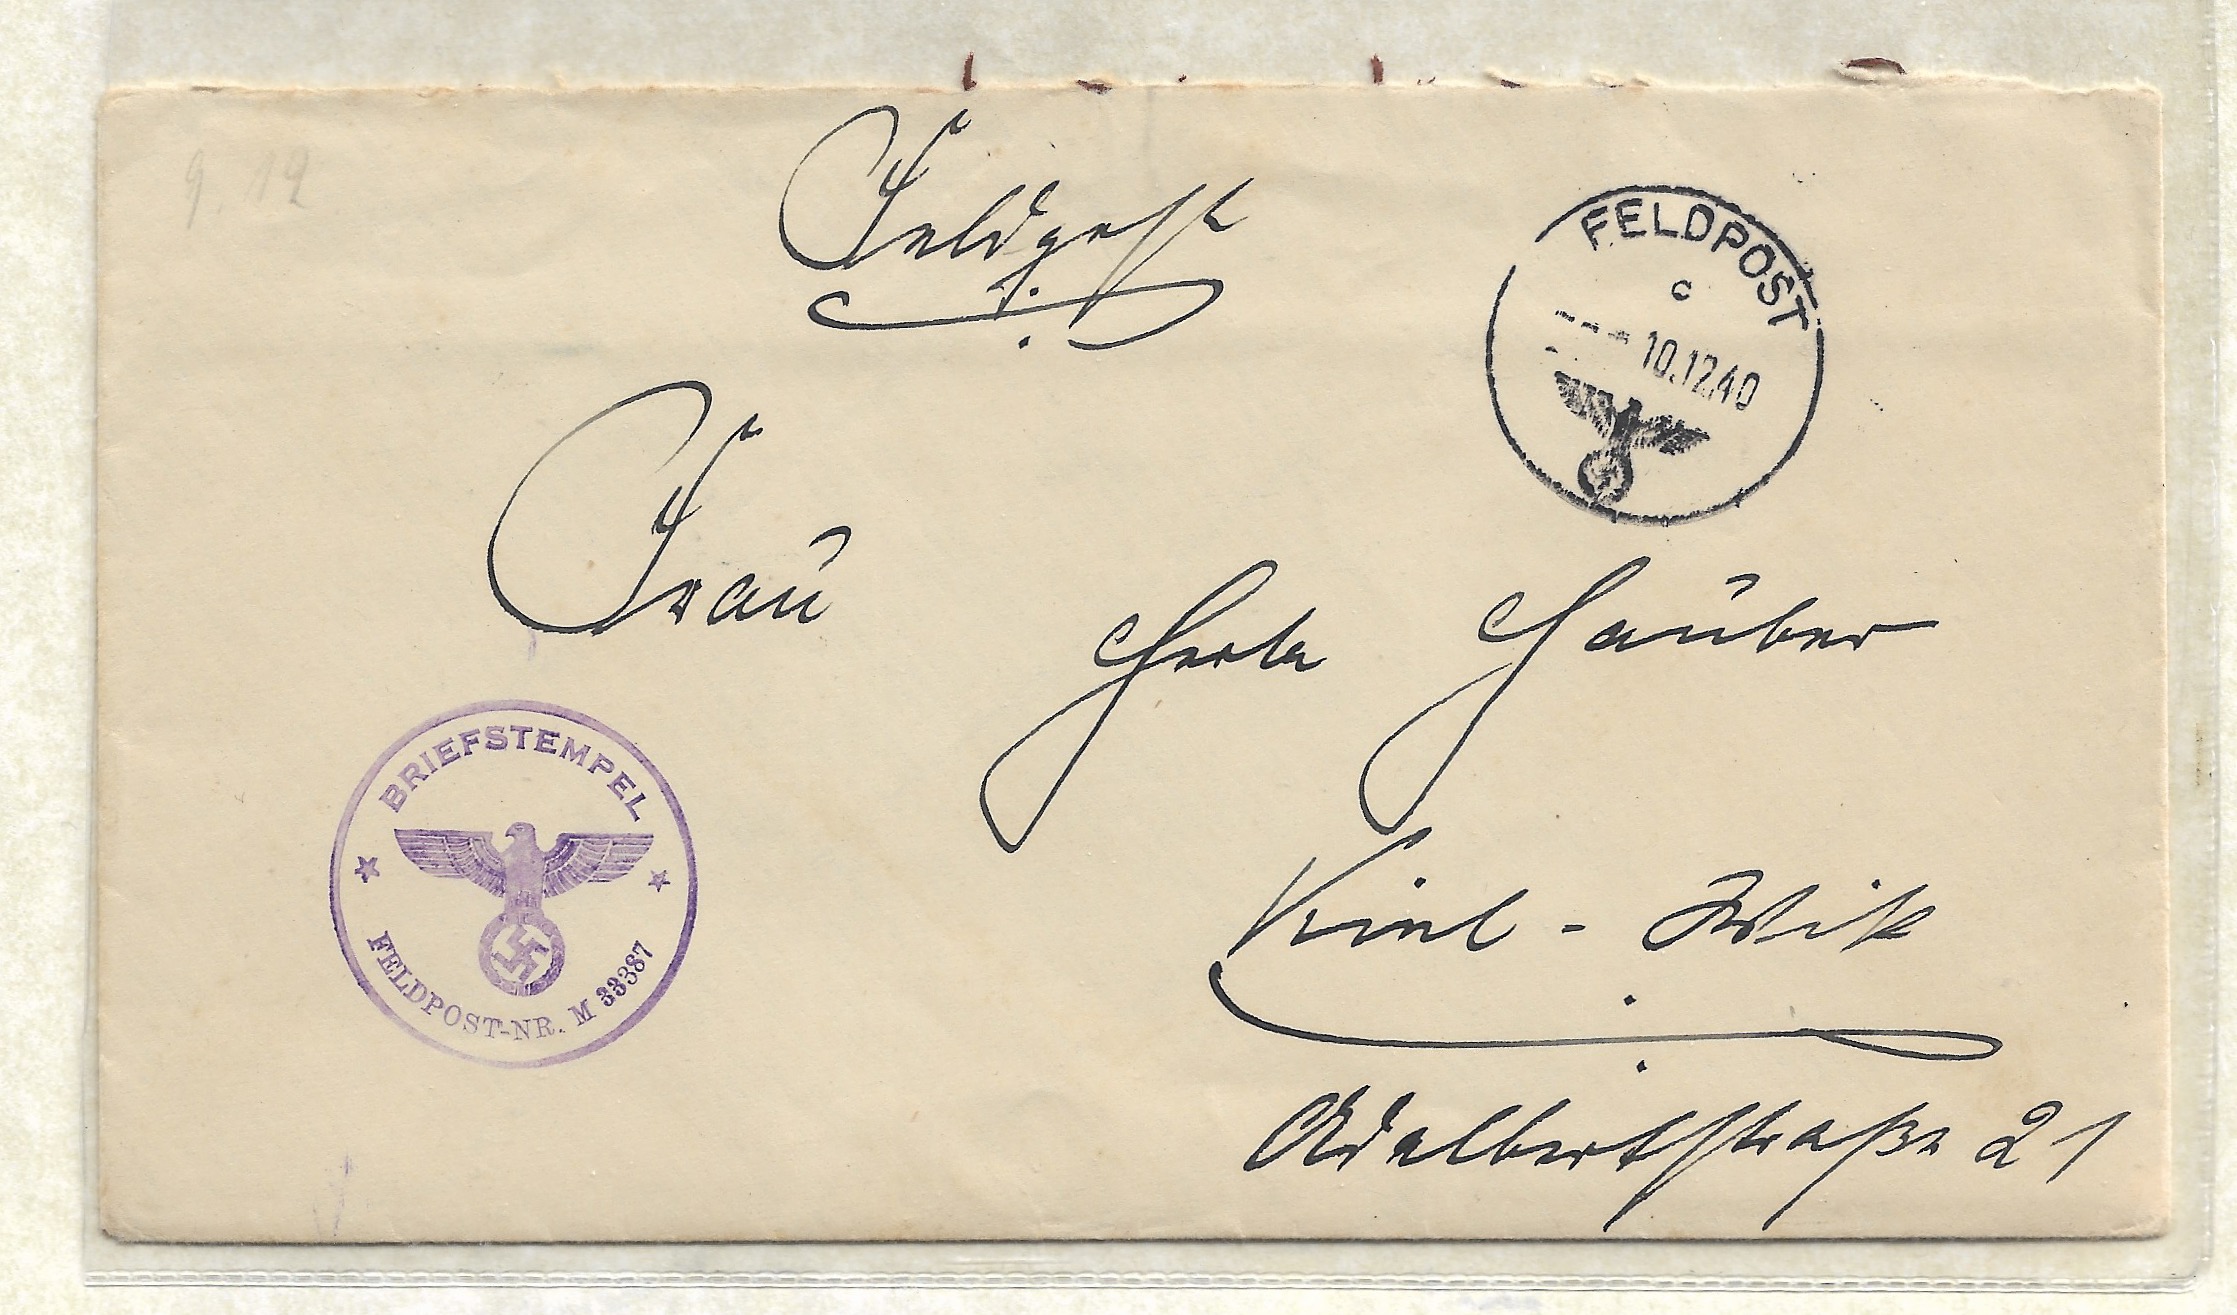 9. 12
Feldpost
FELDPOST
c
--- 10.12.40
Frau Herta Hauber
BRIEFSTEMPEL
FELDPOST-NR. M 33387
Kiel - Wik
Adelbertstraße 21